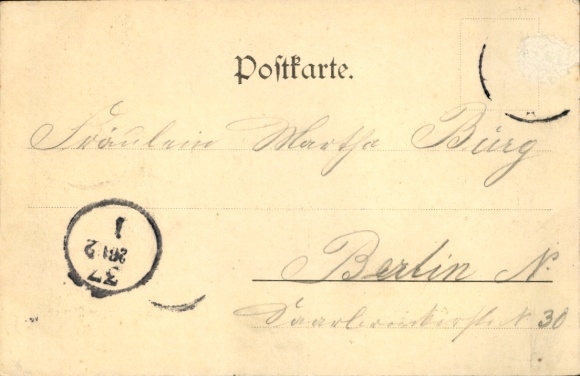 Postkarte.
Fräulein Martha Burg
Berlin N.
30
37